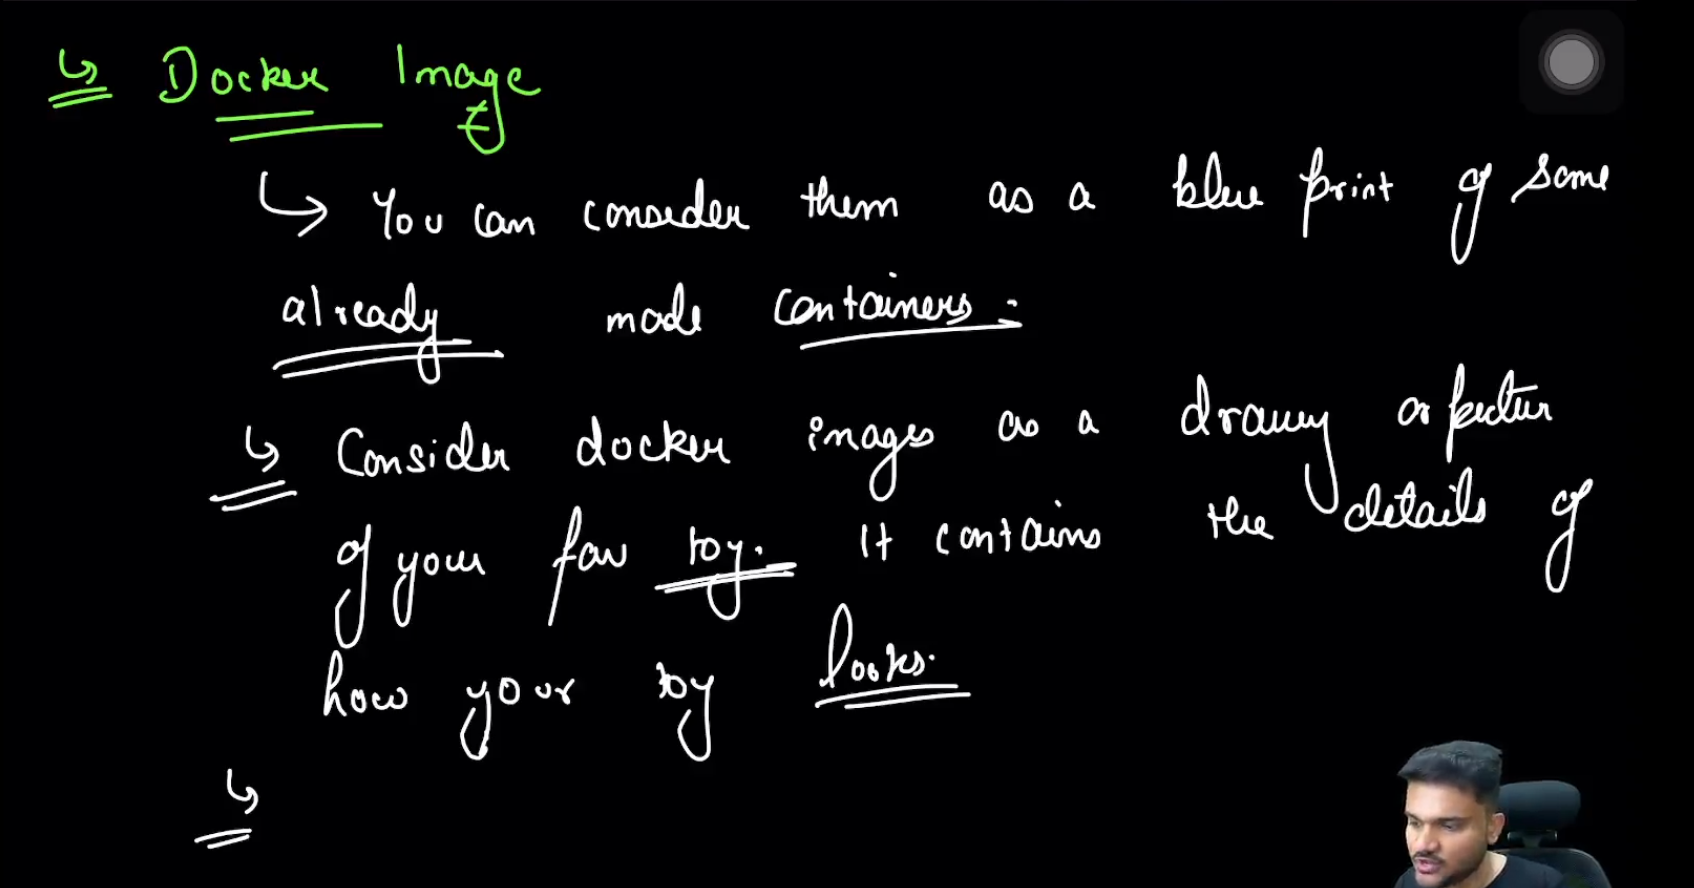 Docker Image
You can consider them as a blue print of some
already made containers.
Consider docker images as a drawing or picture
of your fav toy. It contains the details of
how your toy looks.